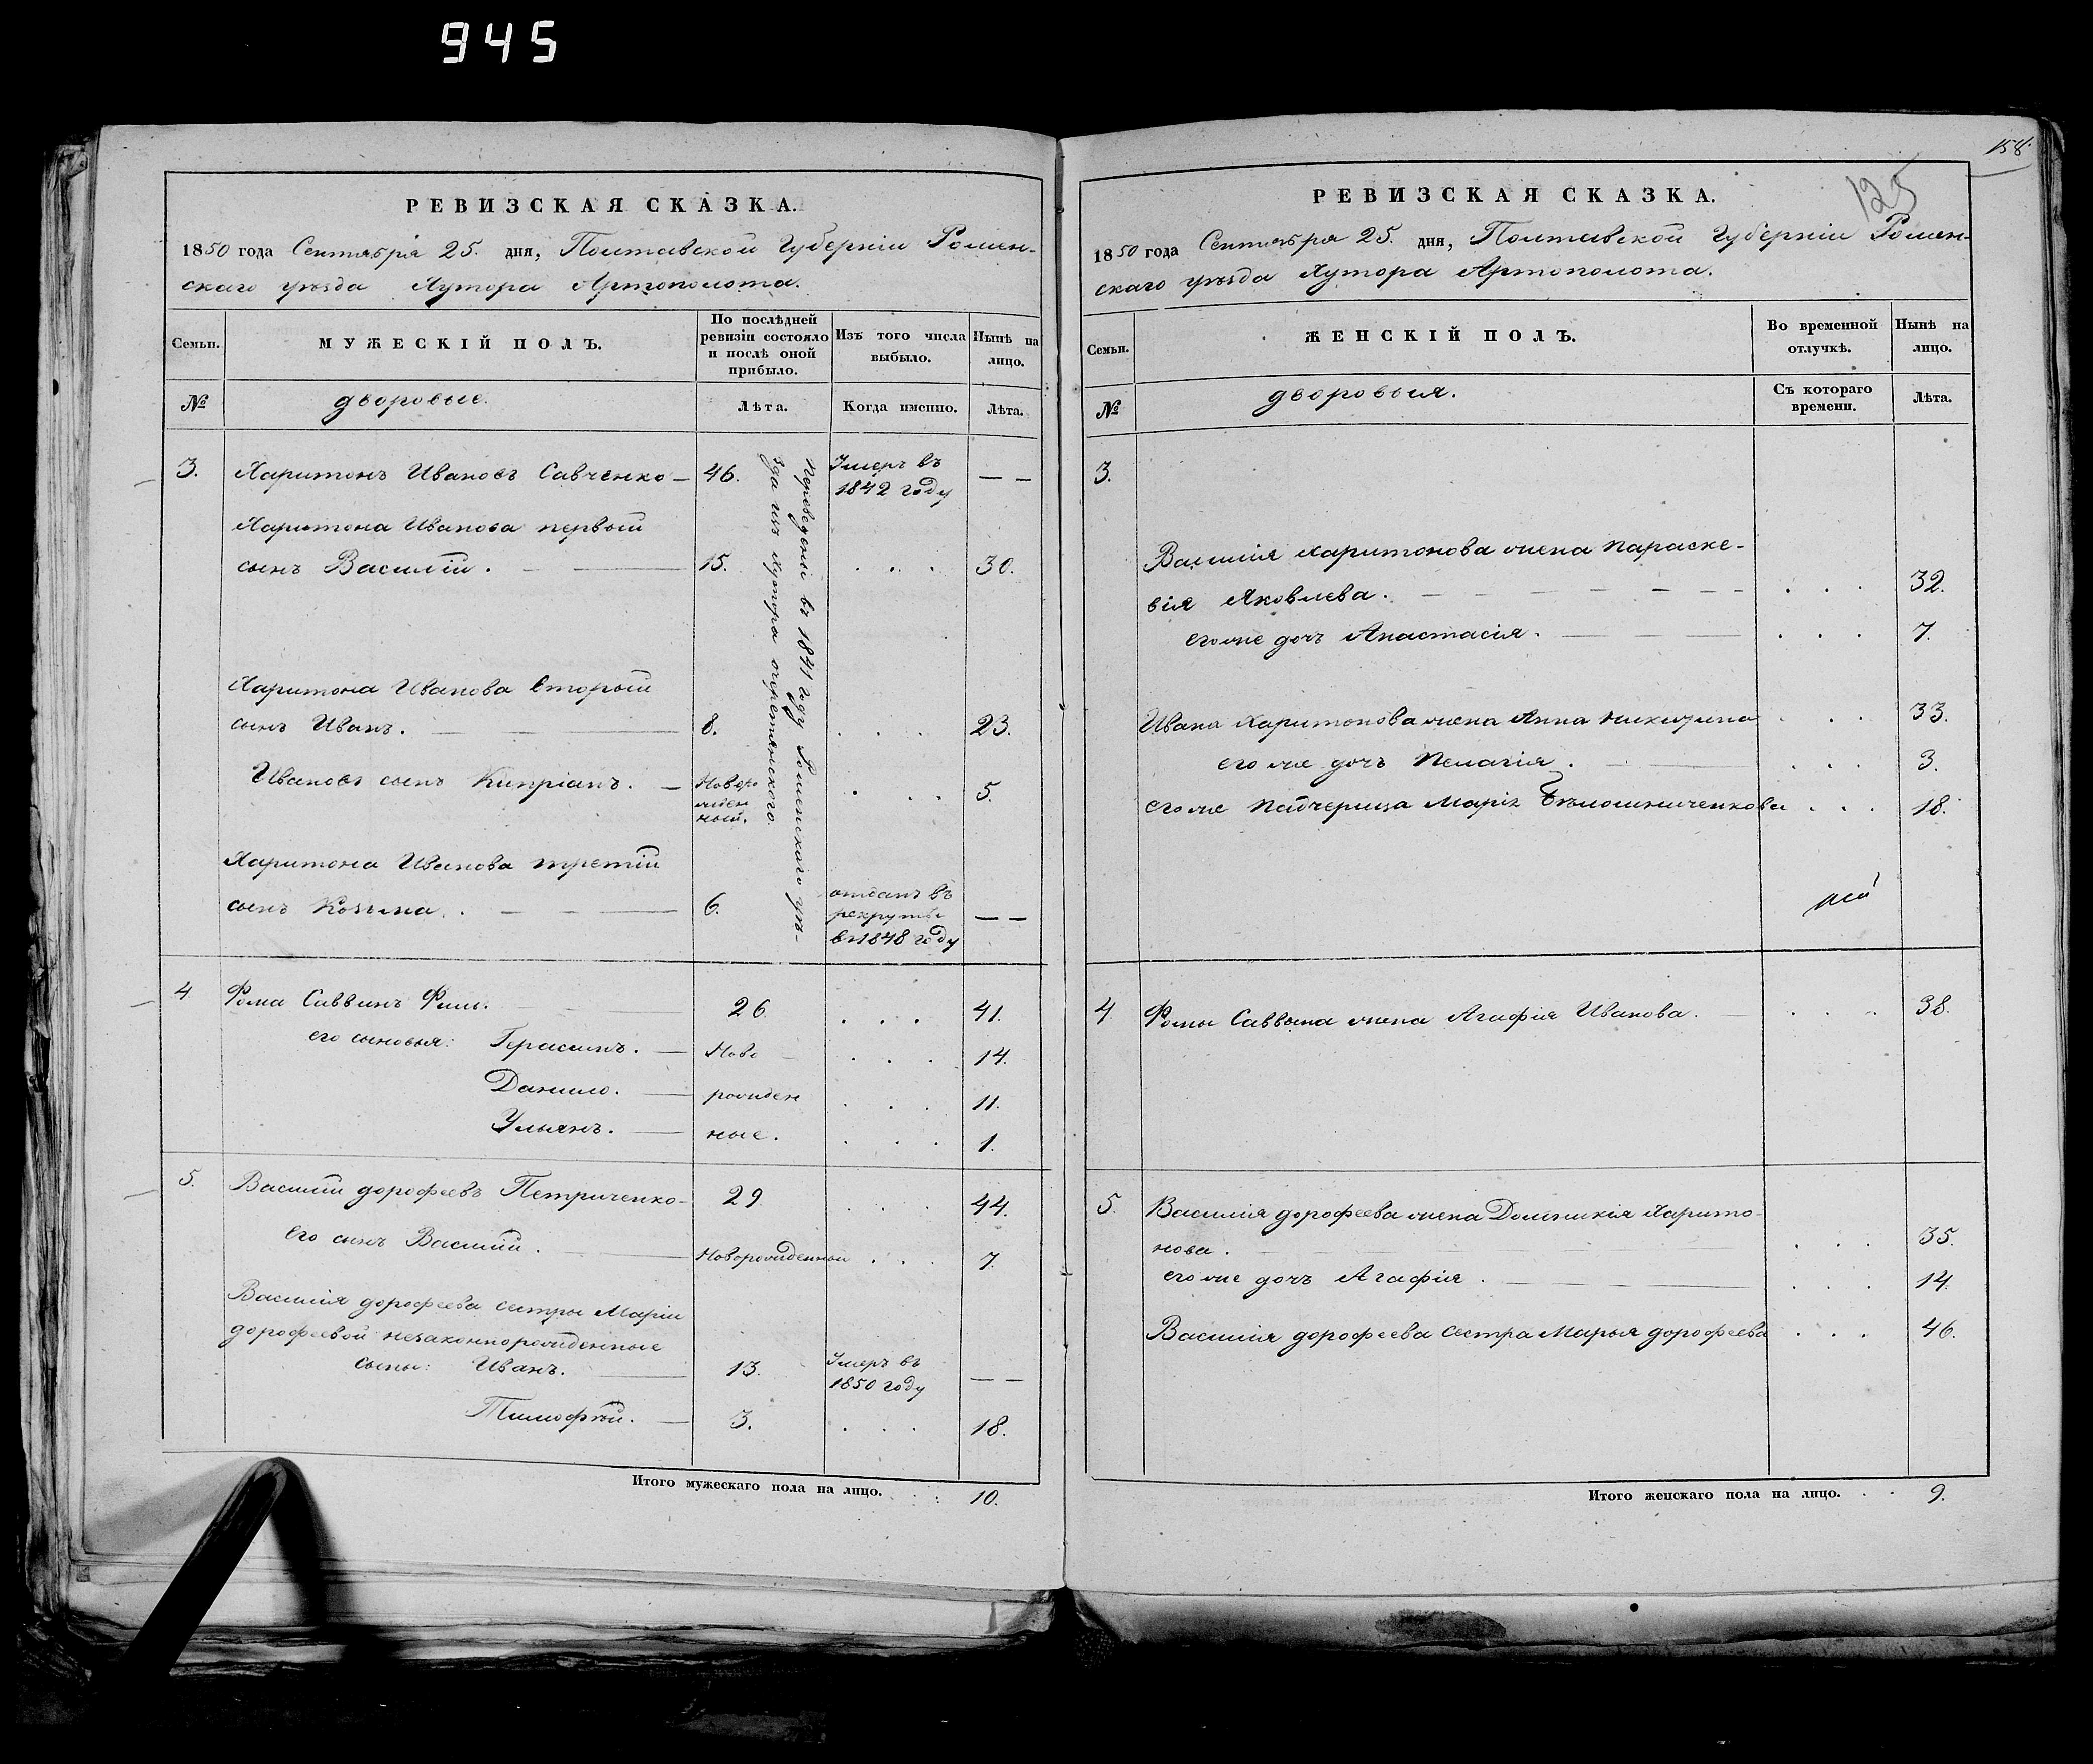 945
РЕВИЗСКАЯ СКАЗКА.
1850 года Сентября 25. дня, Полтавской Губерніи Ромен-
скаго уѣзда Хутора Артополота.
Семьи.
МУЖЕСКІЙ ПОЛЪ.
По послѣдней
ревизіи состояло
и послѣ оной
прибыло.
Изъ того числа
выбыло.
Нынѣ на
лицо.
№
дворовые.
Лѣта.
Когда именно.
Лѣта.
3. Харитонъ Ивановъ Савченко — 46. Умеръ въ
1842 году — —
Харитона Иванова первый
сынъ Василій. — 15. . . . 30.
Харитона Иванова вторый
сынъ Иванъ. — 8. . . . 23.
Ивановъ сынъ Кипріанъ. — Новоро
жден
ный. . . . 5.
Харитона Иванова третій
сынъ Козьма. . — 6. отданъ въ
рекруты
въ 1848 году — —
переведены въ 1841 году Роменскаго уѣ-
зда изъ хутора очеретянского.
4 Фома Саввинъ 26. . . . 41.
его сыновья: Герасимъ. — Ново — . . . 14.
Данило. — рожден . . . 11.
Ульянъ. — ные. . . . 1.
5. Василій дорофеевъ Петриченко — 29 . . . 44.
Его сынъ Василій. — Новорожденный . . . 7.
Василія дорофеева сестры Маріи
дорофеевой незаконнорожденные
сыны: Иванъ. — 13. Умеръ въ
1850 году — —
Тимофѣй. — 3. . . . 18.
Итого мужескаго пола на лицо. . : 10.
158.
125
РЕВИЗСКАЯ СКАЗКА.
1850 года Сентября 25. дня, Полтавской Губерніи Ромен-
скаго уѣзда Хутора Артополота.
Семьи.
ЖЕНСКІЙ ПОЛЪ.
Во временной
отлучкѣ.
Нынѣ на
лицо.
№
дворовыя.
Съ котораго
времени.
Лѣта.
3.
Василія Харитонова жена Параске-
вія Яковлева. — . . . 32.
его же дочъ Анастасія. — . . . 7.
Ивана Харитонова жена Анна . . . 33.
его же дочъ Пелагія. — . . . 3.
его же Падчерица Марія Бѣлошниченкова . . . 18.
4. Фомы Саввина жена Агафія Иванова. — . . . 38.
5. Василія дорофеева жена Домникія Харито-
нова. — . . . 35.
его же дочъ Агафія. — . . . 14.
Василія дорофеева сестра Марья дорофеева . . . 46.
Итого женскаго пола на лицо. . . 9.